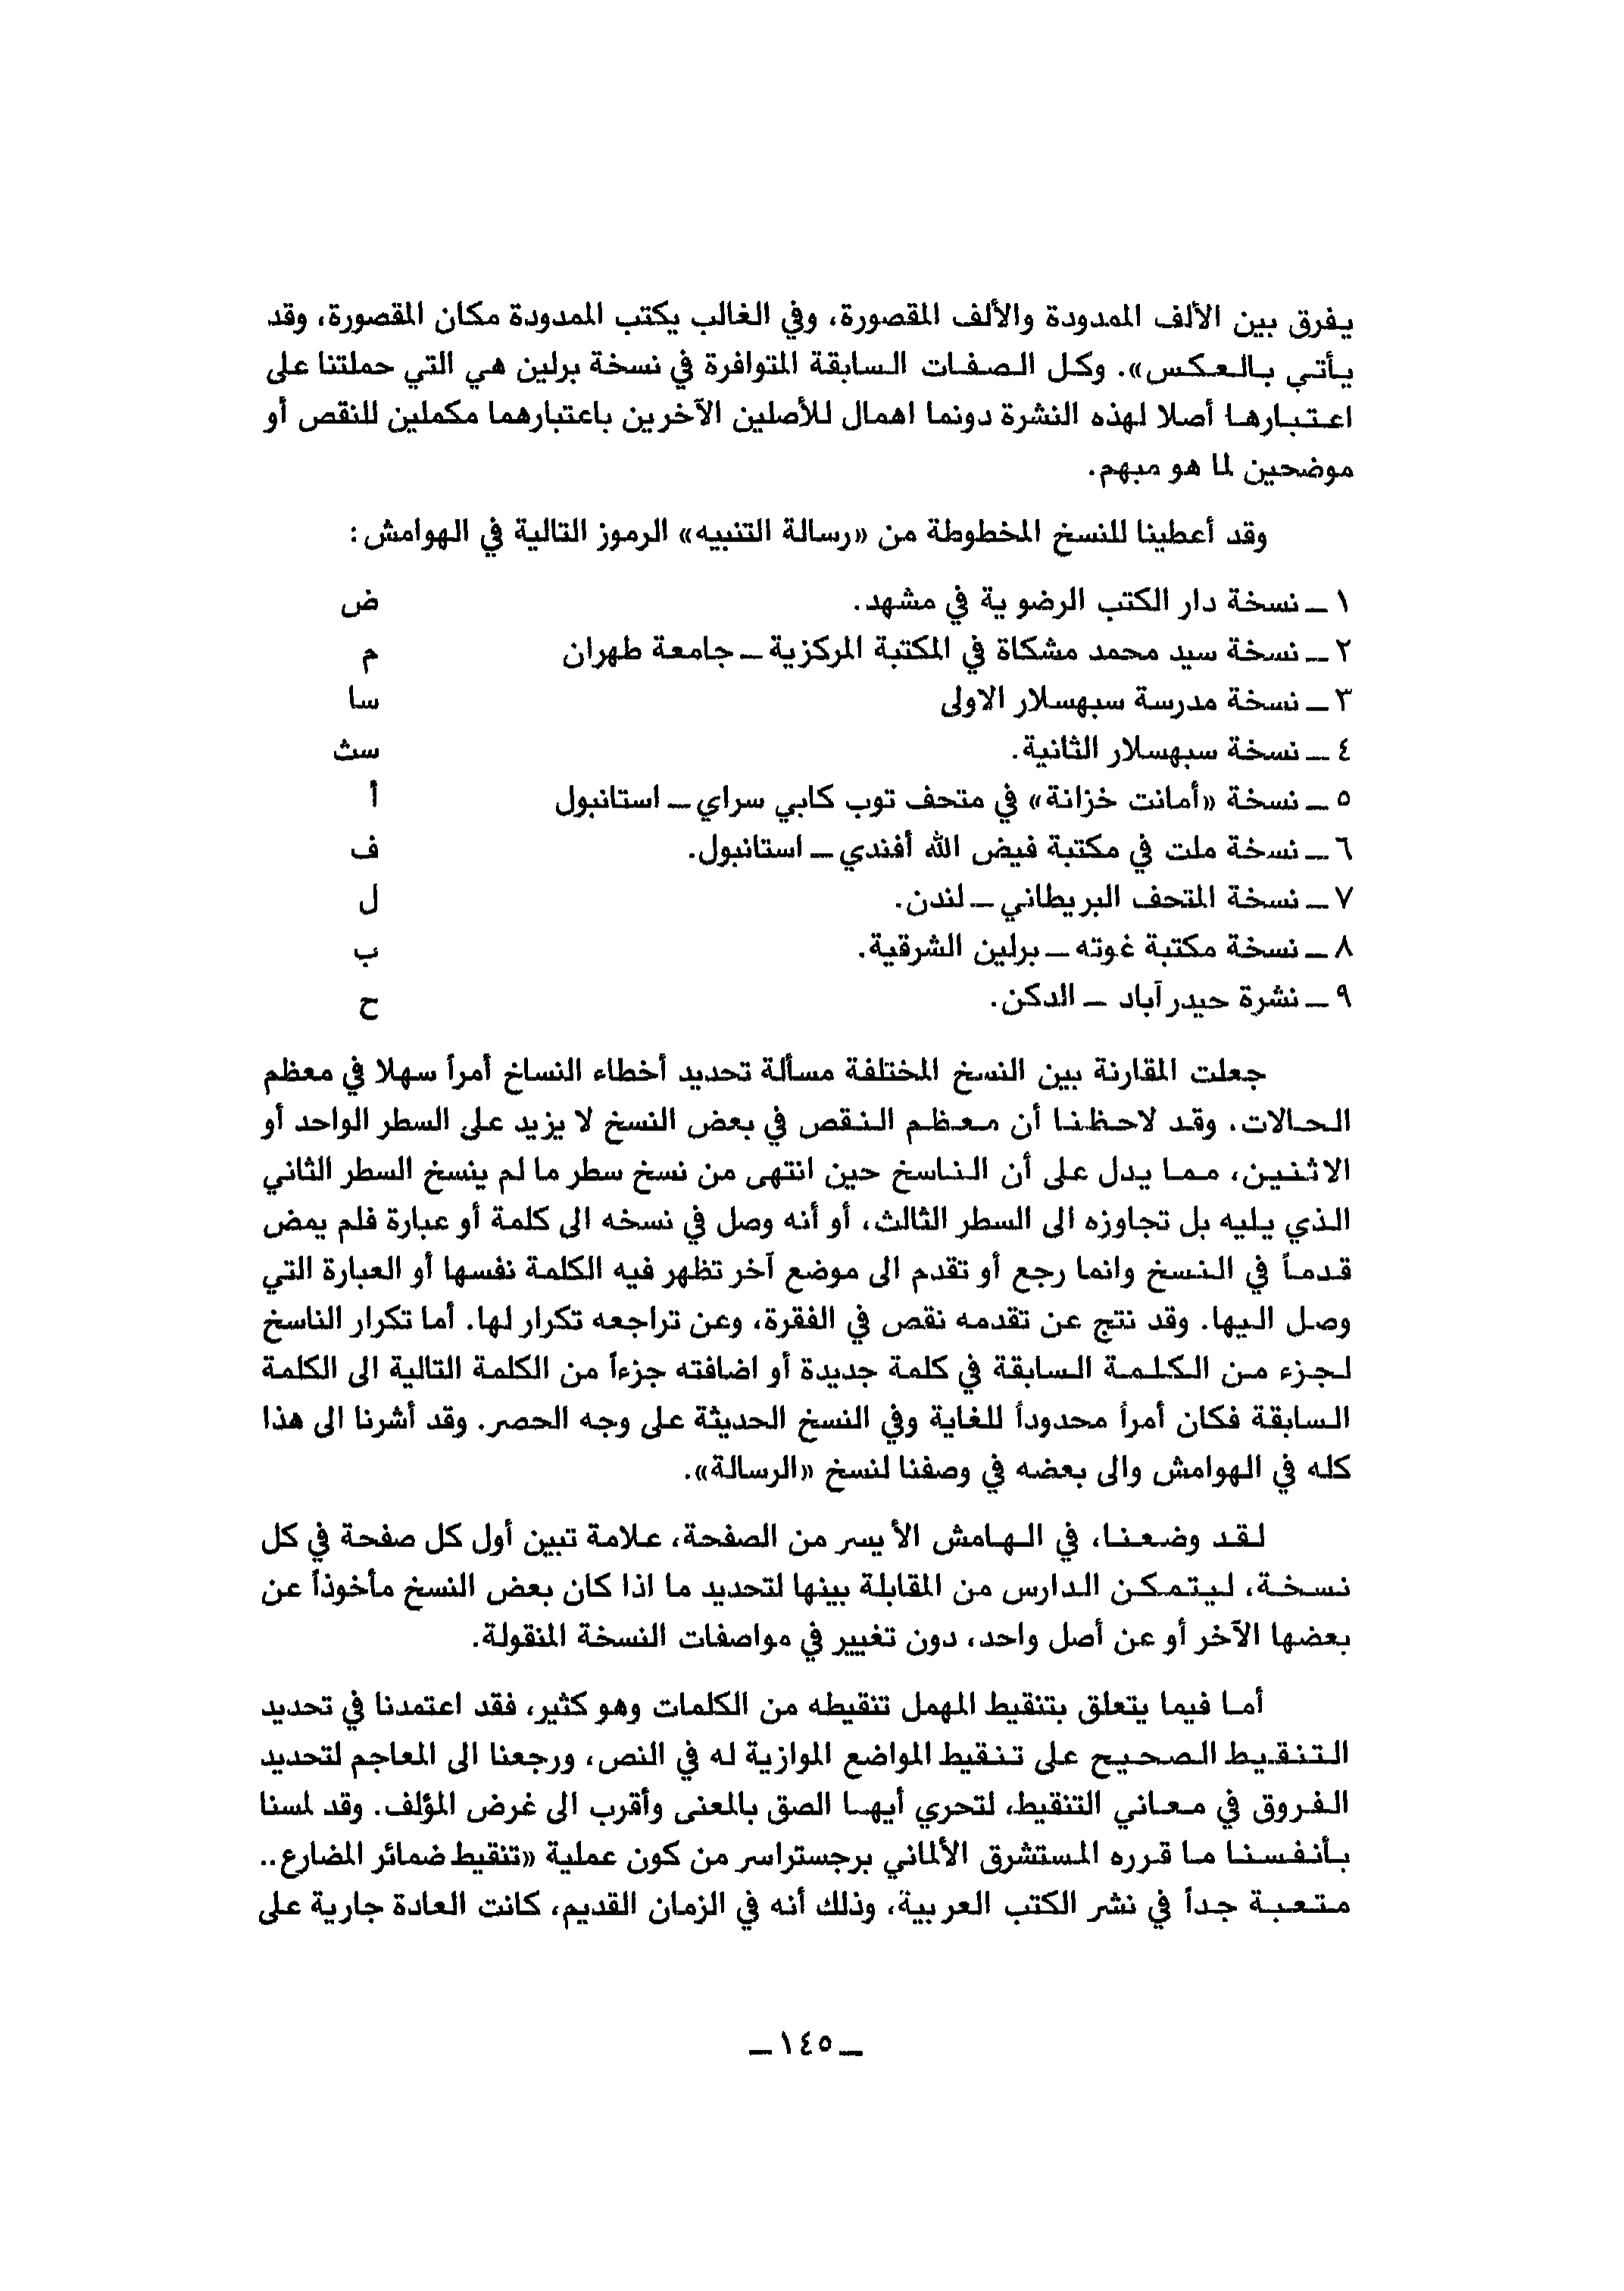 يفرق بين الألف الممدودة والألف المقصورة، وفي الغالب يكتب الممدودة مكان المقصورة، وقد
يأتي بالعكس». وكل الصفات السابقة المتوافرة في نسخة برلين هي التي حملتنا على
اعتبارها أصلا لهذه النشرة دونما اهمال للأصلين الآخرين باعتبارهما مكملين للنقص أو
موضحين لما هو مبهم.
وقد أعطينا للنسخ المخطوطة من «رسالة التنبيه» الرموز التالية في الهوامش:
١ ــ نسخة دار الكتب الرضوية في مشهد. ض
٢ ــ نسخة سيد محمد مشكاة في المكتبة المركزية ــ جامعة طهران م
٣ ــ نسخة مدرسة سبهسلار الاولى سا
٤ ــ نسخة سبهسلار الثانية. سث
٥ ــ نسخة «أمانت خزانة» في متحف توب كابي سراي ــ استانبول أ
٦ ــ نسخة ملت في مكتبة فيض الله أفندي ــ استانبول. ف
٧ ــ نسخة المتحف البريطاني ــ لندن. ل
٨ ــ نسخة مكتبة غوته ــ برلين الشرقية. ب
٩ ــ نشرة حيدر آباد ــ الدكن. ح
جعلت المقارنة بين النسخ المختلفة مسألة تحديد أخطاء النساخ أمراً سهلا في معظم
الحالات. وقد لاحظنا أن معظم النقص في بعض النسخ لا يزيد على السطر الواحد أو
الاثنين، مما يدل على أن الناسخ حين انتهى من نسخ سطر ما لم ينسخ السطر الثاني
الذي يليه بل تجاوزه الى السطر الثالث، أو أنه وصل في نسخه الى كلمة أو عبارة فلم يمض
قدماً في النسخ وانما رجع أو تقدم الى موضع آخر تظهر فيه الكلمة نفسها أو العبارة التي
وصل اليها. وقد نتج عن تقدمه نقص في الفقرة، وعن تراجعه تكرار لها. أما تكرار الناسخ
لجزء من الكلمة السابقة في كلمة جديدة أو اضافته جزءاً من الكلمة التالية الى الكلمة
السابقة فكان أمراً محدوداً للغاية وفي النسخ الحديثة على وجه الحصر. وقد أشرنا الى هذا
كله في الهوامش والى بعضه في وصفنا لنسخ «الرسالة».
لقد وضعنا، في الهامش الأيسر من الصفحة، علامة تبين أول كل صفحة في كل
نسخة، ليتمكن الدارس من المقابلة بينها لتحديد ما اذا كان بعض النسخ مأخوذاً عن
بعضها الآخر أو عن أصل واحد، دون تغيير في مواصفات النسخة المنقولة.
أما فيما يتعلق بتنقيط المهمل تنقيطه من الكلمات وهو كثير، فقد اعتمدنا في تحديد
التنقيط الصحيح على تنقيط المواضع الموازية له في النص، ورجعنا الى المعاجم لتحديد
الفروق في معاني التنقيط، لتحري أيها الصق بالمعنى وأقرب الى غرض المؤلف. وقد لمسنا
بأنفسنا ما قرره المستشرق الألماني برجستراسر من كون عملية «تنقيط ضمائر المضارع..
متعبة جداً في نشر الكتب العربية، وذلك أنه في الزمان القديم، كانت العادة جارية على
ــ ١٤٥ ــ